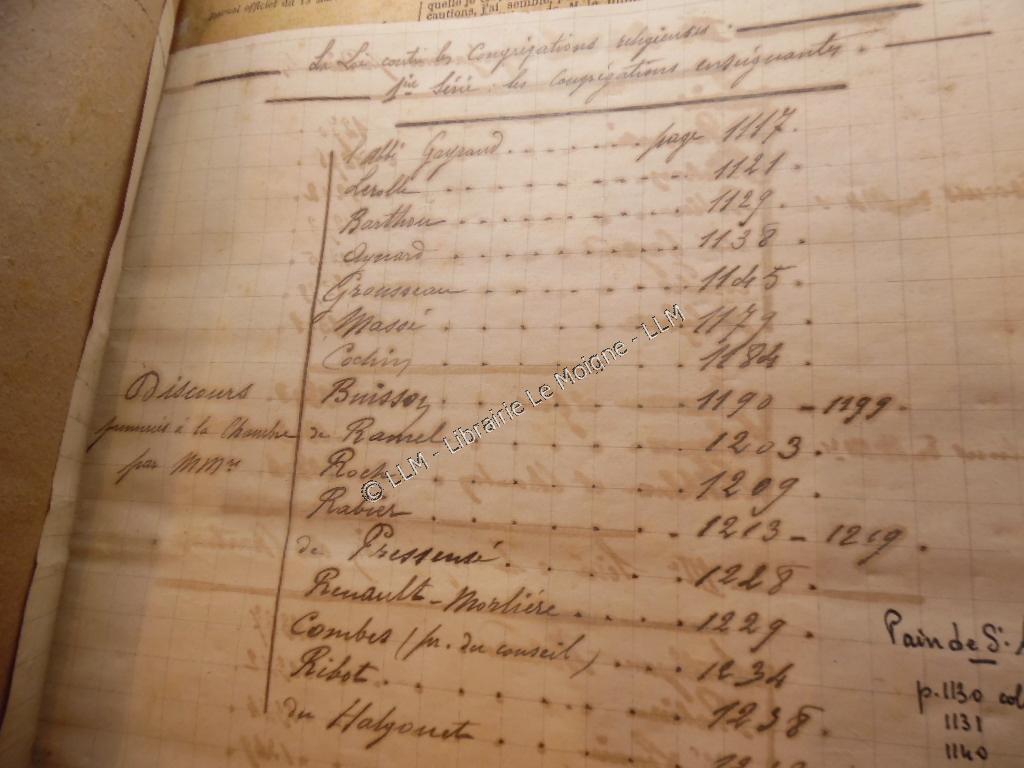 journal officiel du 13
quelle je
cautions, j'ai semblé
La Loi contre les Congrégations religieuses.
1ère Série : les congrégations enseignantes.
l'Abbé Gayraud . . . . . . . page 1117.
Lerolle . . . . . . . . . . 1121 .
Barthou . . . . . . . . . . 1129 .
Aynard . . . . . . . . . . 1138 .
Grousseau . . . . . . . . . 1145 .
Massé . . . . . . . . . . 1179 .
Cochin . . . . . . . . . . 1184 .
Buisson . . . . . . . . . 1190 - 1199 .
Discours
prononcés à la Chambre
par MMrs
de Ramel . . . . . . . . . 1203 .
Roch . . . . . . . . . . 1209 .
Rabier . . . . . . . . . . 1213 - 1219 .
de Pressensé . . . . . . . 1228 .
Renault-Morlière . . . . . 1229 .
Combes (pr. du conseil) . . . . 1234
Ribot . . . . . . . . . . 1238 .
du Halgouet . . . . . . .
Pain de St.
p. 1130 col
1131
1140
© LLM - Librairie Le Moigne - LLM